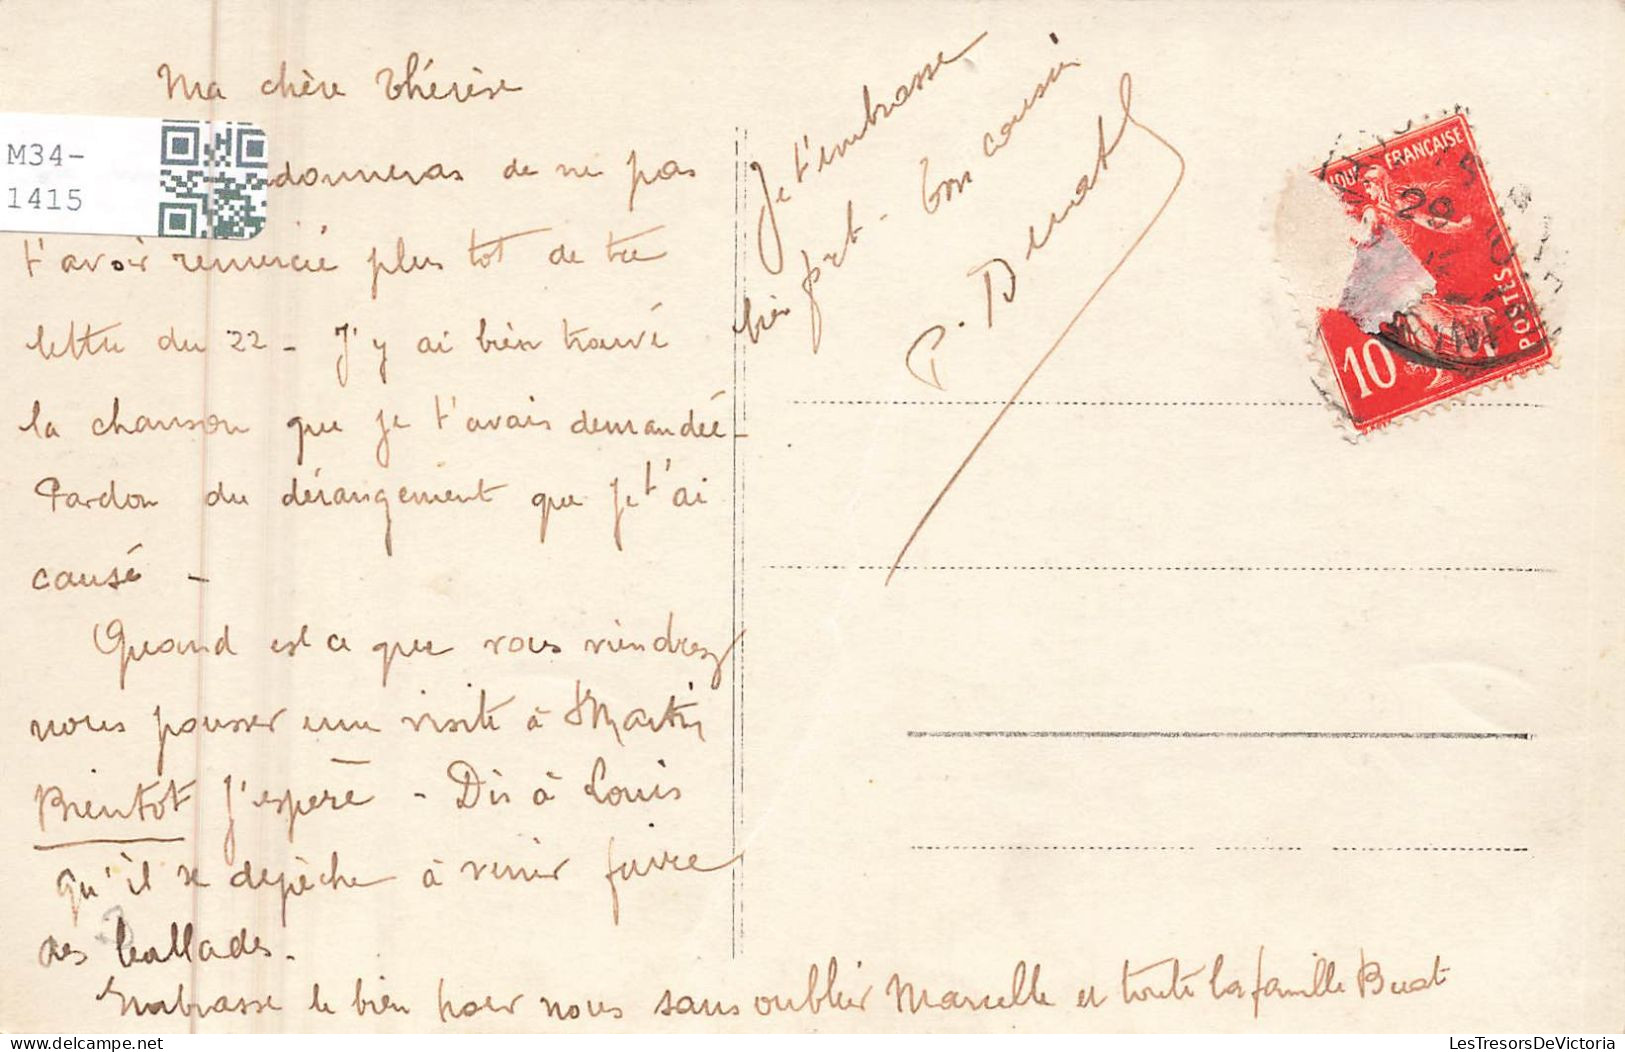 Ma chère Thérèse
M34-
1415
donneras de ne pas
t'avoir remercié plus tot de ta
lettre du 22 - J'y ai bien trouvé
la chanson que je t'avais demandée -
Pardon du dérangement que je t'ai
causé -
Quand est ce que vous viendrez
nous pousser une visite à St Martin
Bientot j'espère - Dis à Louis
qu'il se depèche à venir faire
des ballades.
Embrasse le bien pour nous sans oublier Marcelle et toute la famille Buat
Je t'embrasse
bien fort - Ton cousin
P.
FRANÇAISE
POSTES
10
28
LesTresorsDeVictoria
delcampe.net